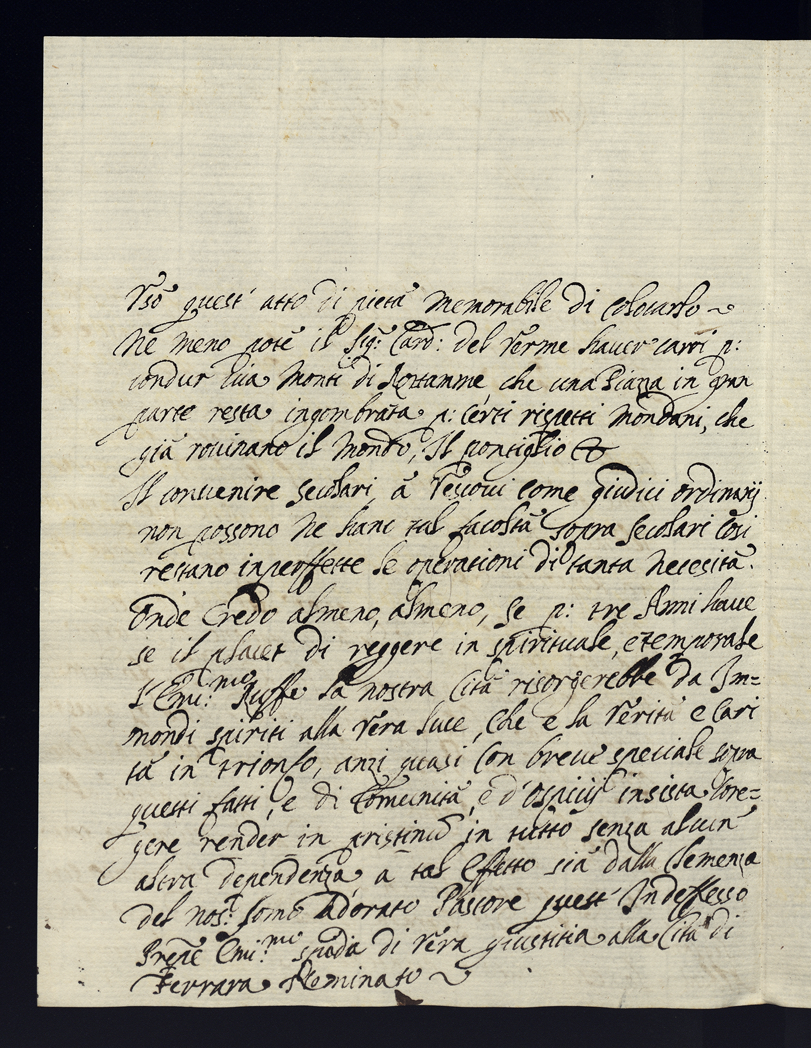 Vsò quest' atto di pietà memorabile di colocarlo ~
Ne meno potè il Sig.r Card: del Verme haver carri p:
condur via Monti di Rottamme che una Piazza in gran
parte resta ingombrata p: Certi rispetti Mondani, che
già rovinano il Mondo, Il pontiglio &
Il convenire secolari à Vescovi come giudici ordinarij
non possono ne hanc tal facoltà sopra secolari così
restano inperffette le operationi di tanta Necesità.
Onde Credo almeno, almeno, se p: tre Anni have
se il placet di reggere in spirituale, e temporale
l'Emi:mo Ruffo la nostra Cità risorgerebbe da Im=
mondi spiriti alla vera luce, Che e la Verità e Cari
tà in trionfo, anzi quasi Con breve speciale sopra
questi fatti, e di Comunità, e d'Ospicij insista Core=
gere render in pristinũ in tutto senza alcun'
altra dependenza à tal Effetto sia dalla Clemenza
del nos.t somo Adorato Pastore quest' Indeffesso
Emi:mo spada di Vera giustitia alla Cità di
Ferrara Neminato ~